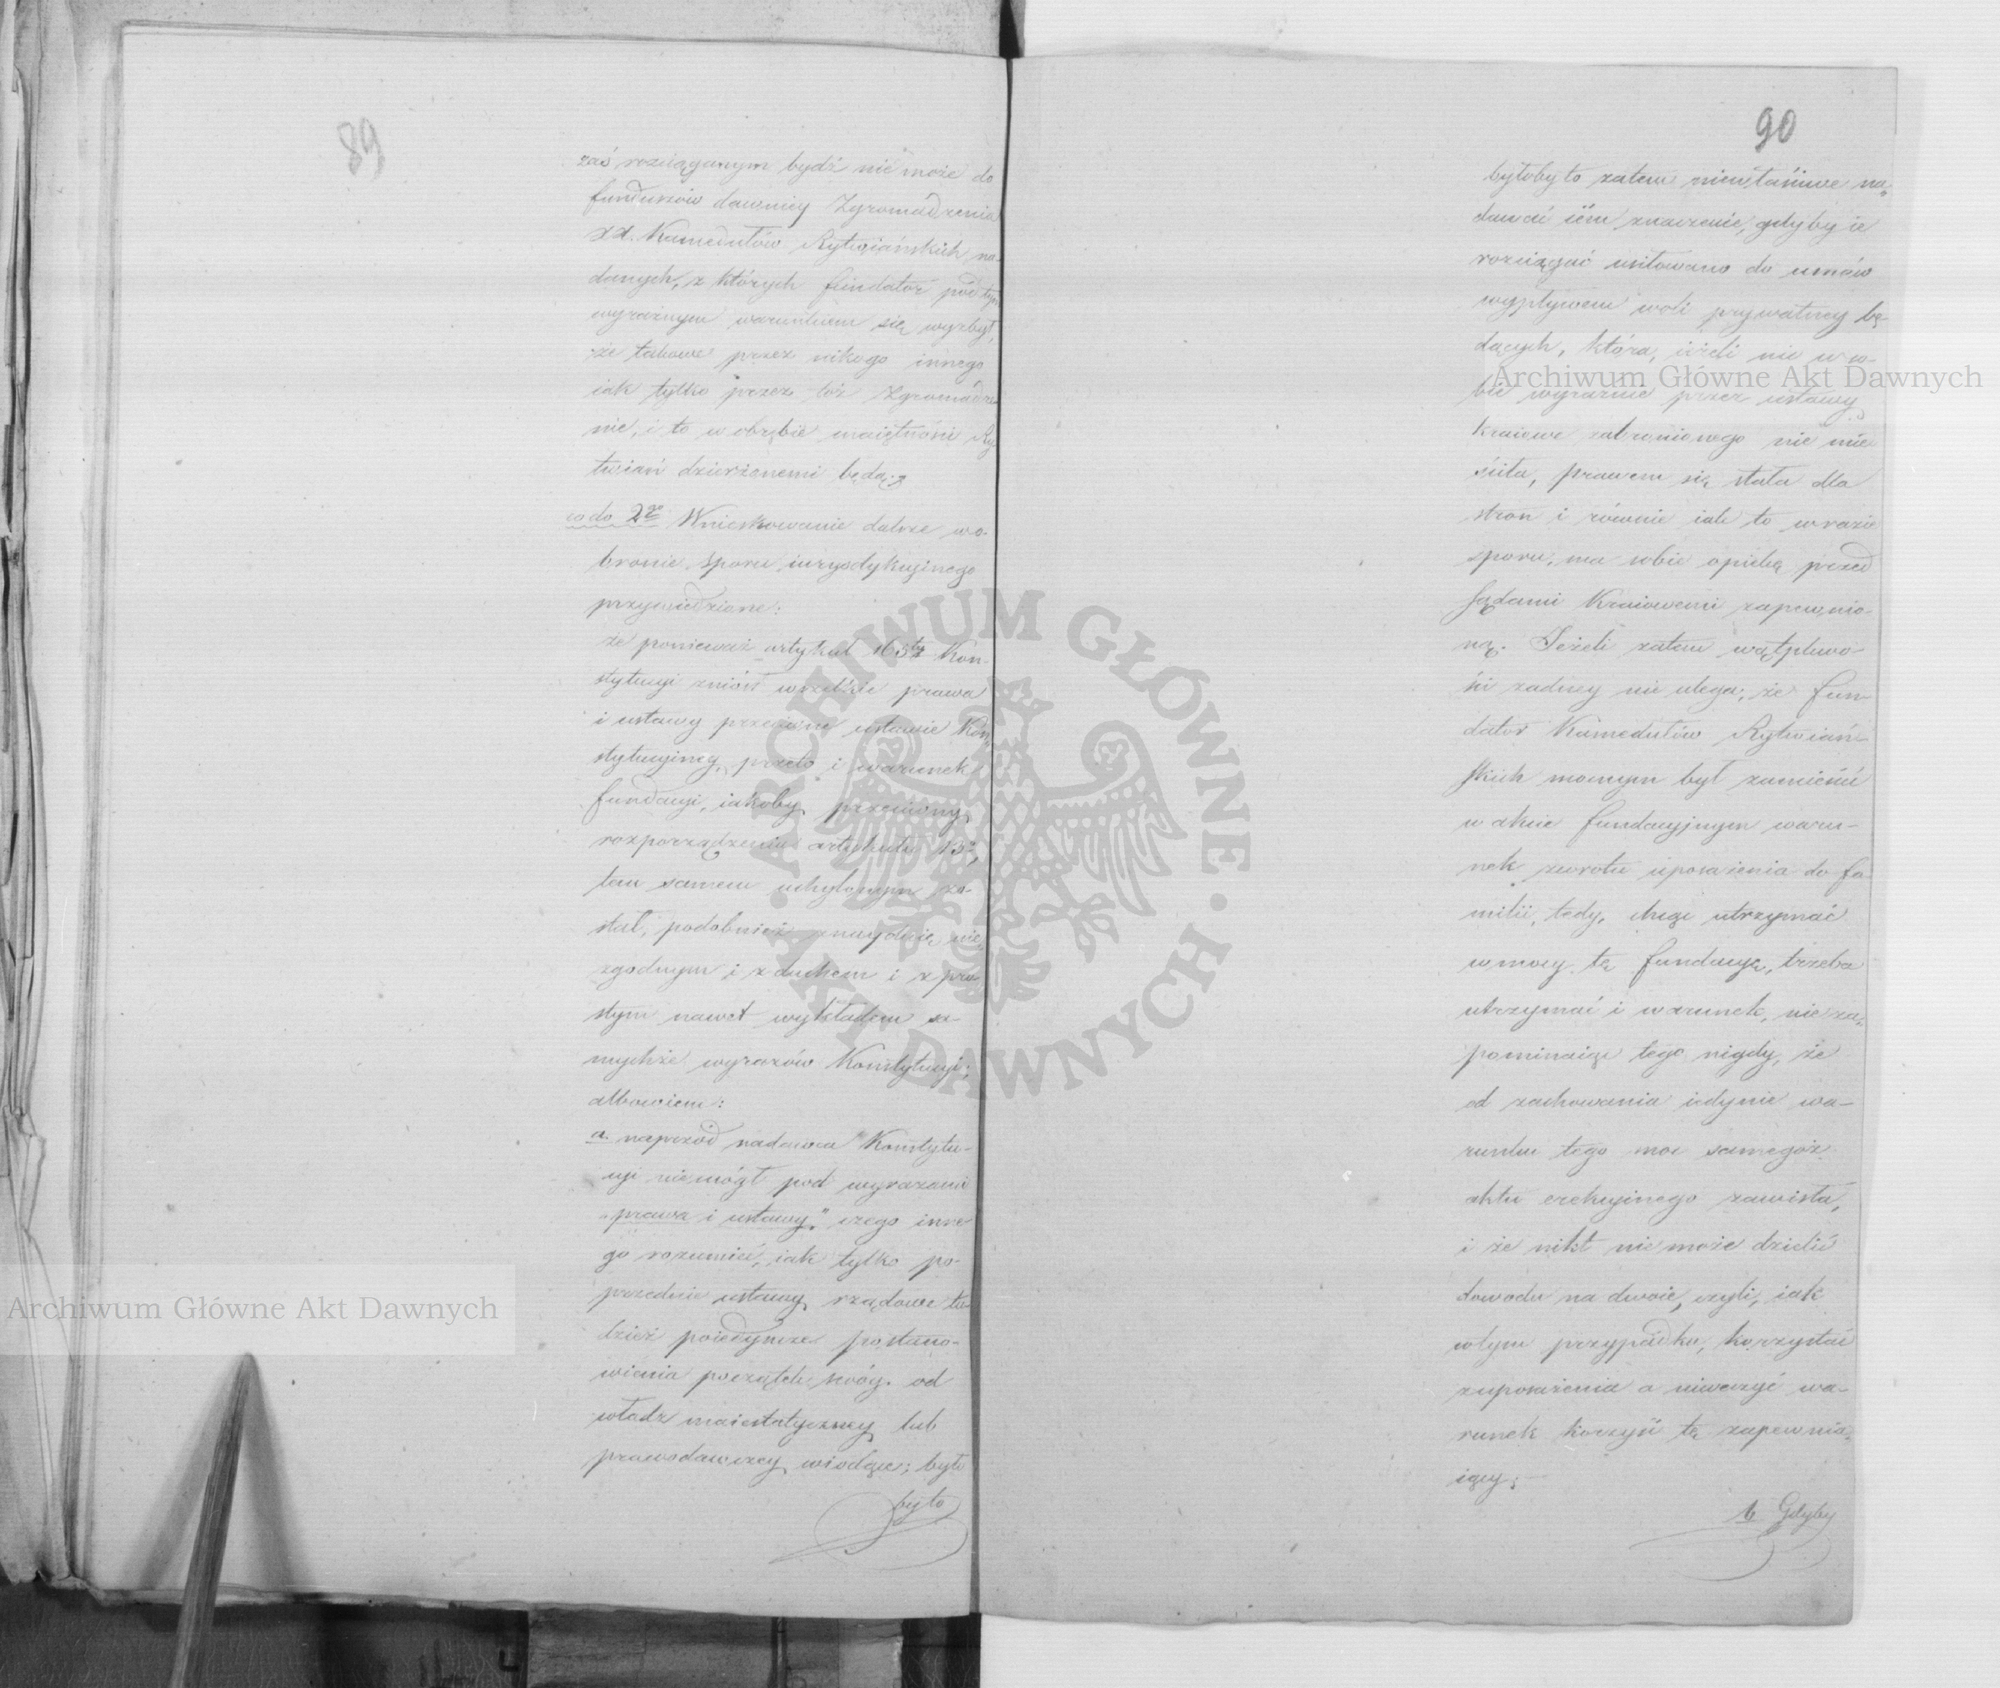 89
zaś rozciąganym bydź nie może do
funduszów dawniey Zgromadzenia
XX. Kamedułów Rytwiańskich na-
danych, z których fundator pod tym
wyraźnym warunkiem się wyzbył,
że takowe przez nikogo innego
iak tylko przez toż Zgromadze-
nie, i to w obrębie maiętności Ry-
twian dzierżonemi będą;
co do 2go Wnioskowanie dalsze w o-
bronie sporu iurysdykcyjnego
przywiedzione:
że ponieważ artykuł 163ty Kon-
stytucyi zniósł wszelkie prawa
i ustawy przeciwne ustawie Kon-
stytucyiney, przeto i warunek
fundacyi, iakoby przeciwny
rozporządzeniu artykułu 13o,
tem samem uchylonym zo-
stał, podobnież znayduię nie
zgodnym i z duchem i z pro-
stym nawet wykładem sa-
mychże wyrazów Konstytucyi;
albowiem:
a. naprzód nadawca Konstytu-
cyi nie mógł pod wyrazami
„prawa i ustawy" czego inne-
go rozumieć, iak tylko po-
przednie ustawy rządowe tu-
dzież poiedyncze postano-
wienia początek swóy od
władz maiestatyczney lub
prawodawczey wiodące; było
było
90
byłoby to zatem niewłaściwe na-
dawać iém znaczenie, gdyby ie
rozciągać usiłowano do umów
wypływem woli prywatney bę-
dących, która, ieżeli nie w so-
bie wyraźnie przez ustawy
kraiowe zabronionego nie mie-
ściła, prawem się stała dla
stron i równie iak to w razie
sporu, ma sobie opiekę przed
Sądami Kraiowemi zapewnio-
ną. Jeżeli zatem wątpliwo-
ści żadney nie ulega, że fun-
dator Kamedułów Rytwiań-
skich mocnym był zamieścić
w akcie fundacyjnym waru-
nek zwrotu uposażenia do fa-
milii, tedy, chcąc utrzymać
w mocy tę fundacyę, trzeba
utrzymać i warunek, nie za-
pominaiąc tego nigdy, że
od zachowania iedynie wa-
runku tego moc samegoż
aktu erekcyinego zawisła,
i że nikt nie może dzielić
dowodu na dwoie, czyli, iak
w tym przypadku, korzystać
z uposażenia a niweczyć wa-
runek korzyść tę zapewnia-
iący;
b Gdyby
Archiwum Główne Akt Dawnych
Archiwum Główne Akt Dawnych
ARCHIWUM GŁÓWNE · AKT DAWNYCH ·